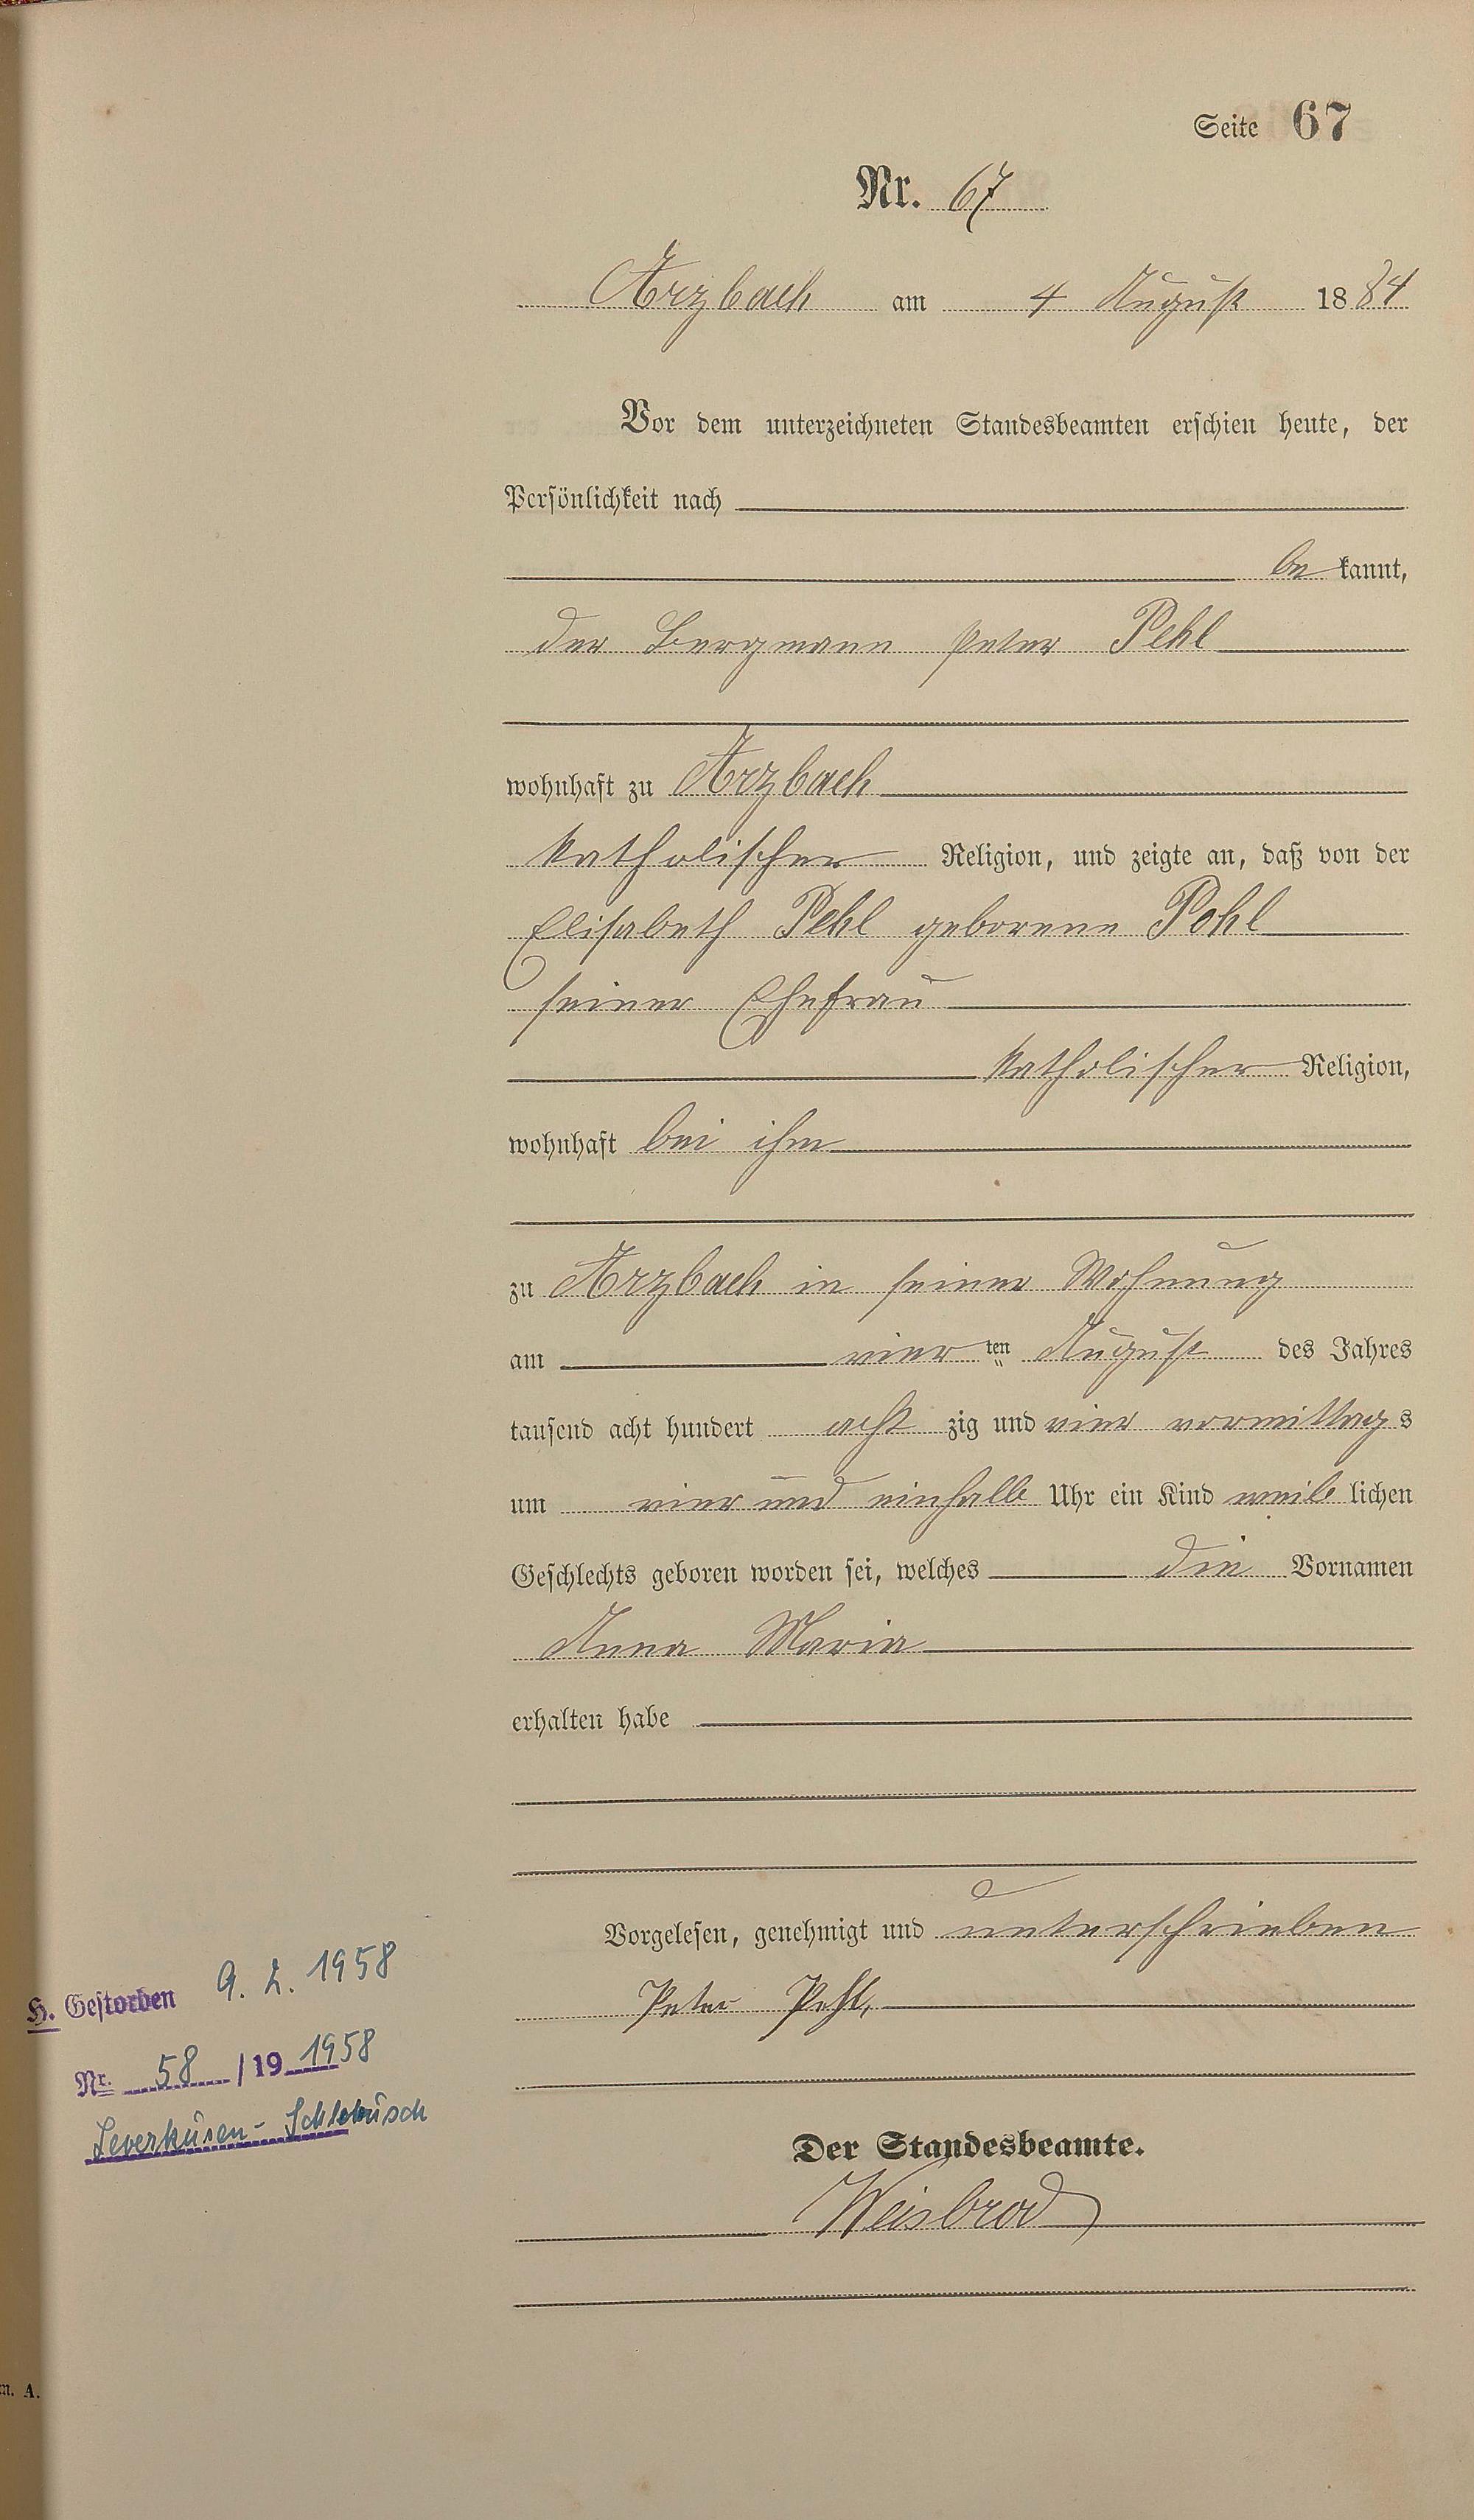 Seite 67
Nr. 67
Arzbach am 4 August 1884
Vor dem unterzeichneten Standesbeamten erschien heute, der
Persönlichkeit nach
be kannt,
der Bergmann Peter Pehl
wohnhaft zu Arzbach
katholischer Religion, und zeigte an, daß von der
Elisabeth Pehl geborene Pohl
seiner Ehefrau
katholischer Religion,
wohnhaft bei ihm
zu Arzbach in seiner Wohnung
am vier ten August des Jahres
tausend acht hundert acht zig und vier vormittags
um vier und einhalb Uhr ein Kind weib lichen
Geschlechts geboren worden sei, welches die Vornamen
Anna Maria
erhalten habe
Vorgelesen, genehmigt und unterschrieben
Peter Pehl,
H. Gestorben 9. 2. 1958
Nr. 58 / 19 1958
Leverkusen-Schlebusch
Der Standesbeamte.
Weisbrod
m. A.